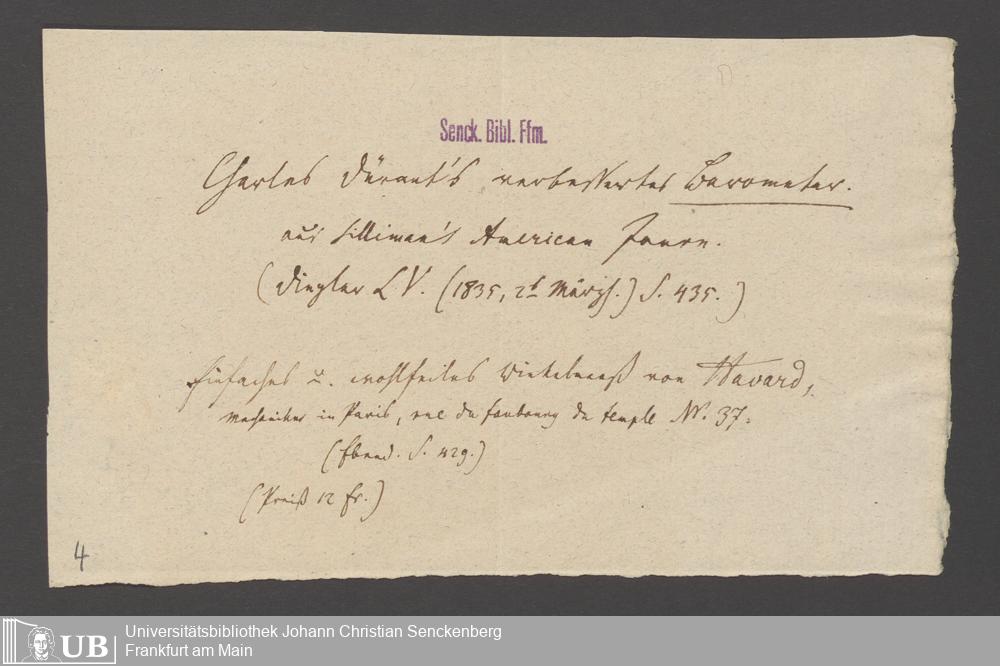 Senck. Bibl. Ffm.
Charles Dürant's verbessertes Barometer.
aus Silliman's American Journ.
(Dingler LV. (1835, 2t Märzh.) S. 435.)
Einfaches u. wohlfeiles Winkelmaaß von Havard,
Mechaniker in Paris, rue du faubourg du temple Nr. 37.
(Ebend. S. 429.)
(Preiß 12 fr.)
4
UB
Universitätsbibliothek Johann Christian Senckenberg
Frankfurt am Main